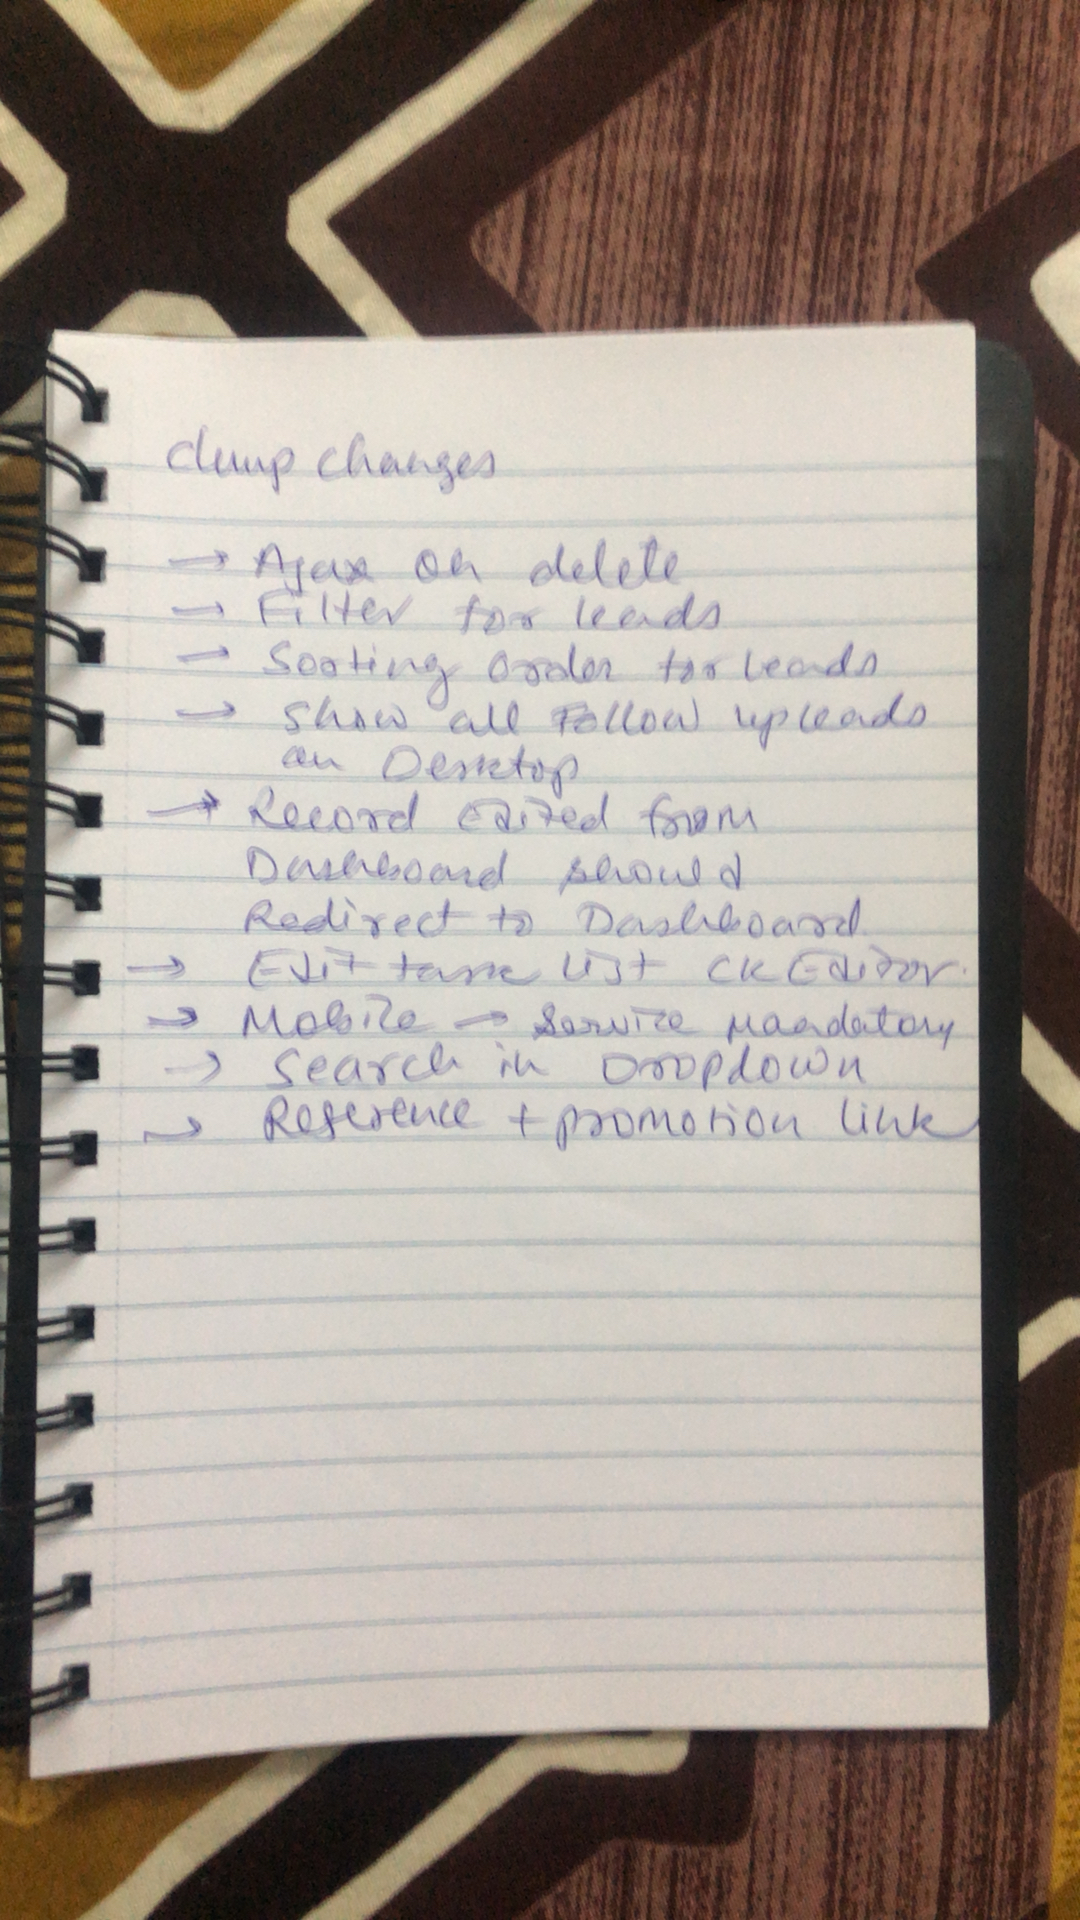 changes
→ Ajax on delete
→ Filter for leads
→ Sorting order for leads
→ Show all Follow up leads
on Desktop
→ Record Edited from
Dashboard should
Redirect to Dashboard
→ Edit task list CK Editor.
→ Mobile → Service mandatory
→ Search in Dropdown
→ Reference + promotion link